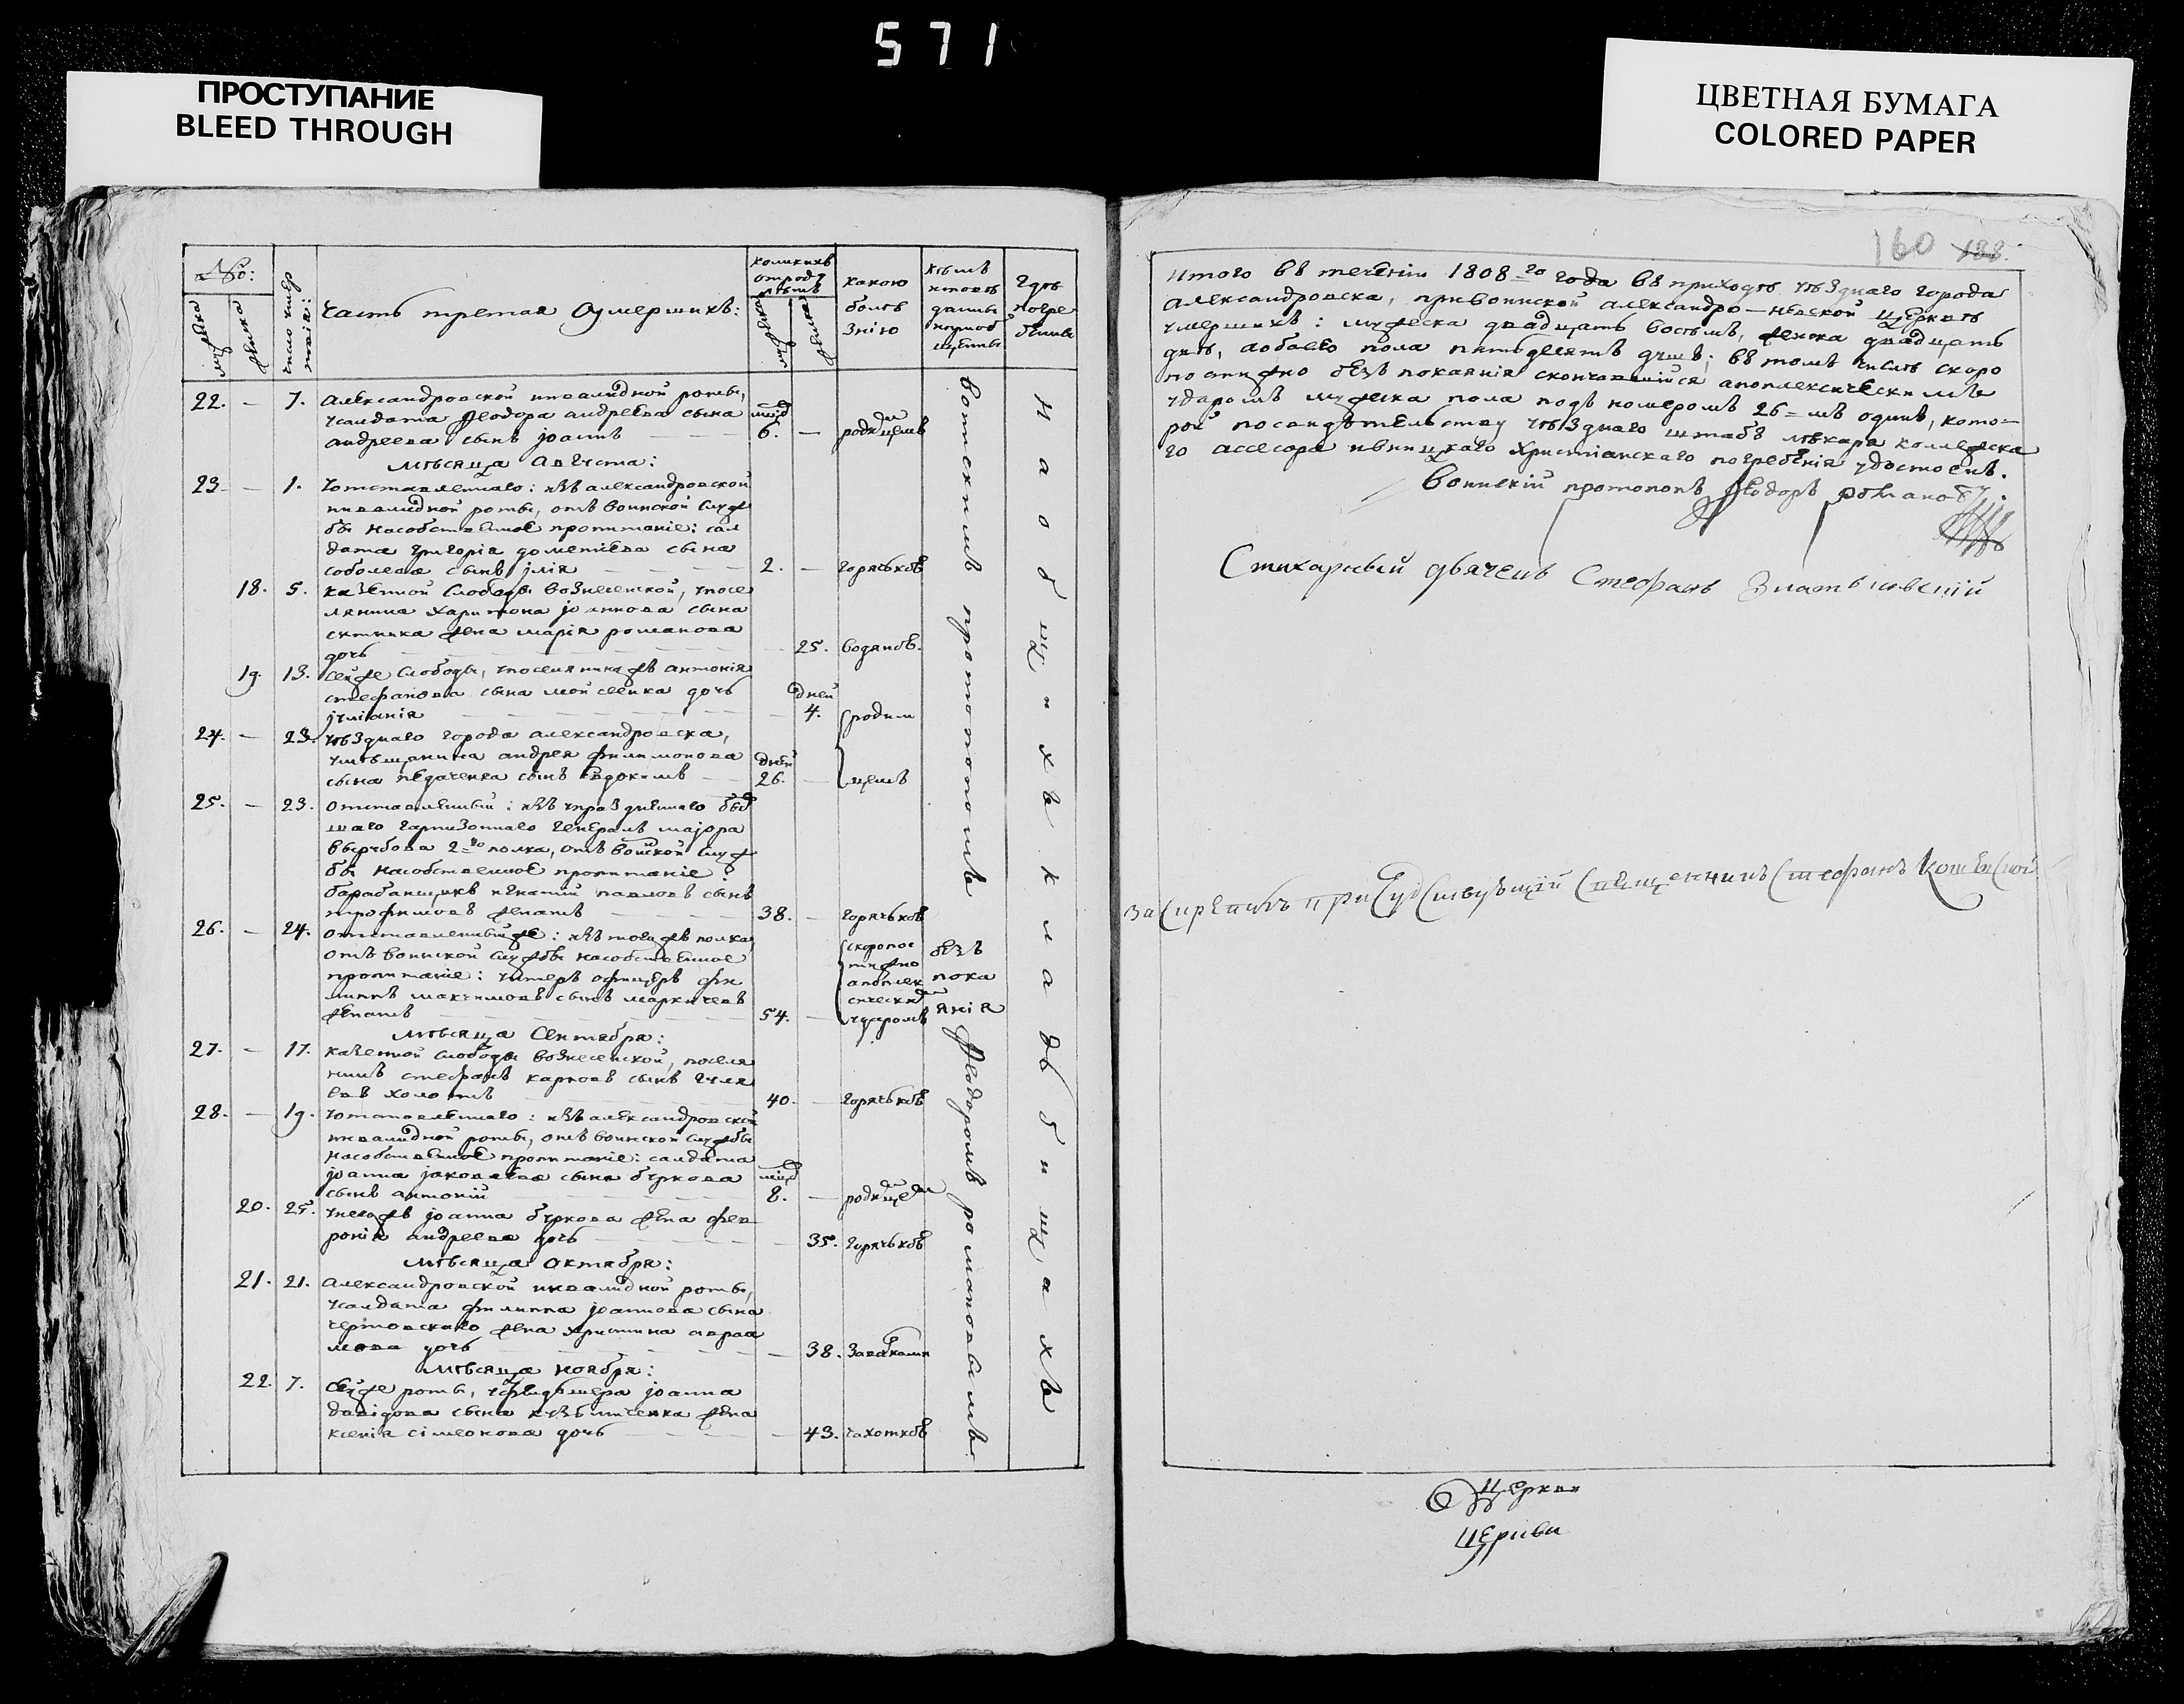 571
ПРОСТУПАНИЕ
BLEED THROUGH
ЦВЕТНАЯ БУМАГА
COLORED PAPER
№:
мужеска
женска
число умертвія:
Часть третая О умершихъ:
коликихъ
отроду
лѣтъ
мужеска
женска
какою
болѣ
знію
кѣмъ
исповѣ
даны
и приоб
щены
гдѣ
погре
бены
22. — 7. Александровской инвалидной роты,
у салдата Ѳеодора андреева сына
андреева сынъ іоаннъ 6. — родимцемъ
мѣсяца Августа:
23 — 1. У отставленнаго: изъ александровской
инвалидной роты, отъ воинской служ
бы на собственное пропитаніе: сал
дата григорія дометіева сына
соболева сынъ ілія 2. — горячкоѣ
18. 5. Казенной слободы вознесенской, у посе
лянина харитона іоаннова сына
скотника жена марія романова
дочь 25. водяноѣ.
19. 13. Сейже слободы, у поселянина жъ антонія
стефанова сына мойсеенка дочь
іуліанія дней 4. родим
24. — 23. Уѣзднаго города александровска,
у мѣщанина андрея филимонова
сына педаченка сынъ Евдокимъ дней 26. — цемъ
25. — 23. Отставленный: изъ упраздненнаго быв
шаго гарнизоннаго генералъ маіора
вырубова 2-го полка, отъ воинской служ
бы на собственное пропитаніе:
барабанщикъ игнатій павловъ сынъ
трофимовъ женатъ 38. — горячкоѣ
26. — 24. Отставленный же: изъ того жъ полка,
отъ воинской службы на собственное
пропитаніе: унтеръ офицеръ фи
липпъ максимовъ сынъ маркичевъ
женатъ 54. — скоропос
тижно
апоплек
сическим
ударомъ
безъ
пока
янія
мѣсяца Сентября:
27. — 17. Казенной слободы вознесенской, поселя
нинъ стефанъ карповъ сынъ гуля
евъ холостъ 40. — горячкоѣ
28. — 19. У отставленнаго: изъ александровской
инвалидной роты, отъ воинской службы
на собственное пропитаніе: салдата
іоанна іаковлева сына буркова
сынъ антоній 8. — родимцем
20. 25. У него жъ іоанна буркова жена фев
ронія андреева дочь 35. горячкоѣ
мѣсяца Октября:
21. 21. Александровской инвалидной роты,
у салдата филиппа іоаннова сына
чертовскаго жена христина авраа
мова дочь 38.
мѣсяца Ноября:
22. 7. Сейже роты, іоанна
давідова сына кузьмиченка жена
ксенія сімеонова дочь 43. чахоткоѣ
воинскимъ протопопомъ Ѳеодоромъ романовымъ
На общихъ кладбищахъ
160
Итого въ теченіи 1808-го года въ приходѣ уѣзднаго города
александровска, при воинской александро-невской церквѣ
умершихъ: мужеска двадцать восемь, женска двадцать
два, а обоего пола пятьдесятъ душъ; въ томъ числѣ скоро
постижно безъ покаянія скончавшійся апоплексическимъ
ударомъ мужеска пола подъ номеромъ 26-мъ одинъ, кото-
рой по свидѣтельству уѣзднаго штабъ лѣкаря коллежска
го ассесора ивницкаго христіанскаго погребенія удостоенъ.
Воинскій протопопъ Ѳеодоръ романовъ.
Стихарный дьячекъ Стефанъ
Засирепилъ присудствующій священникъ Стефанъ
Церкви
Церкви